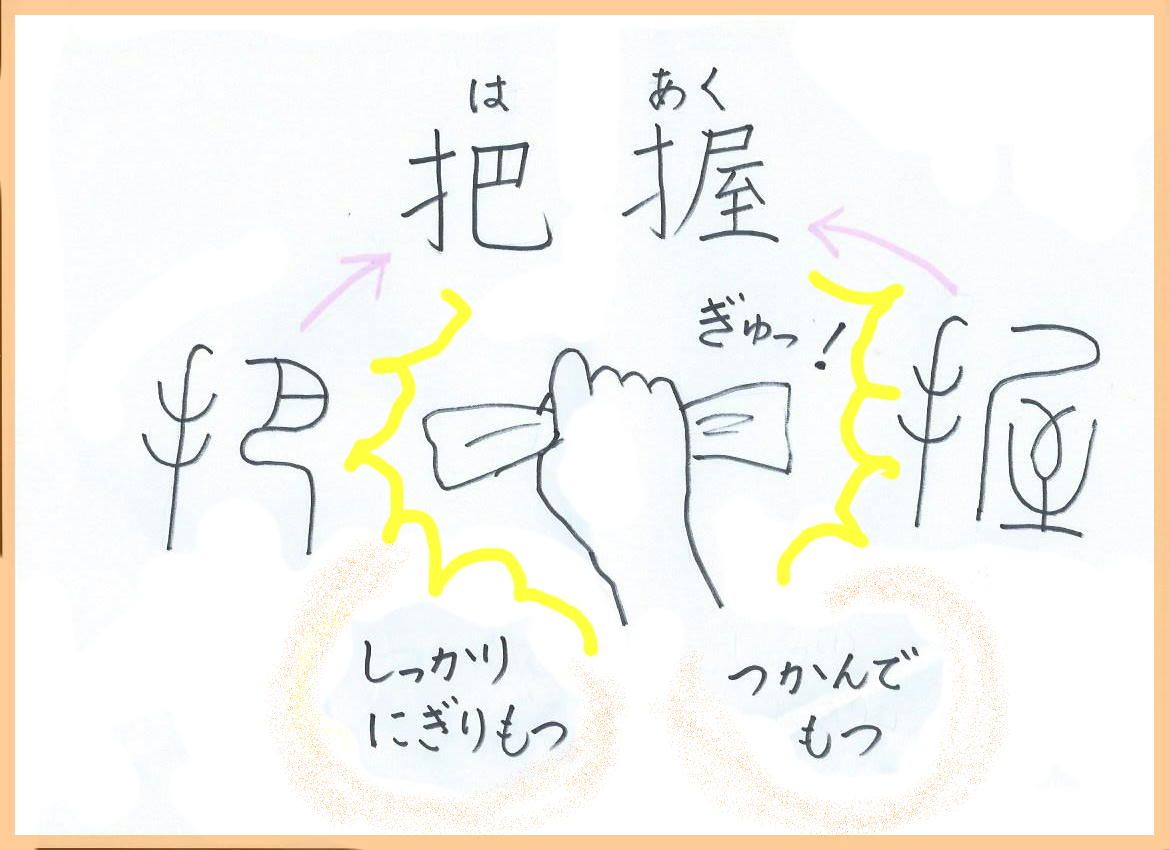 は あく
把握
ぎゅっ!
しっかり
にぎりもつ
つかんで
もつ